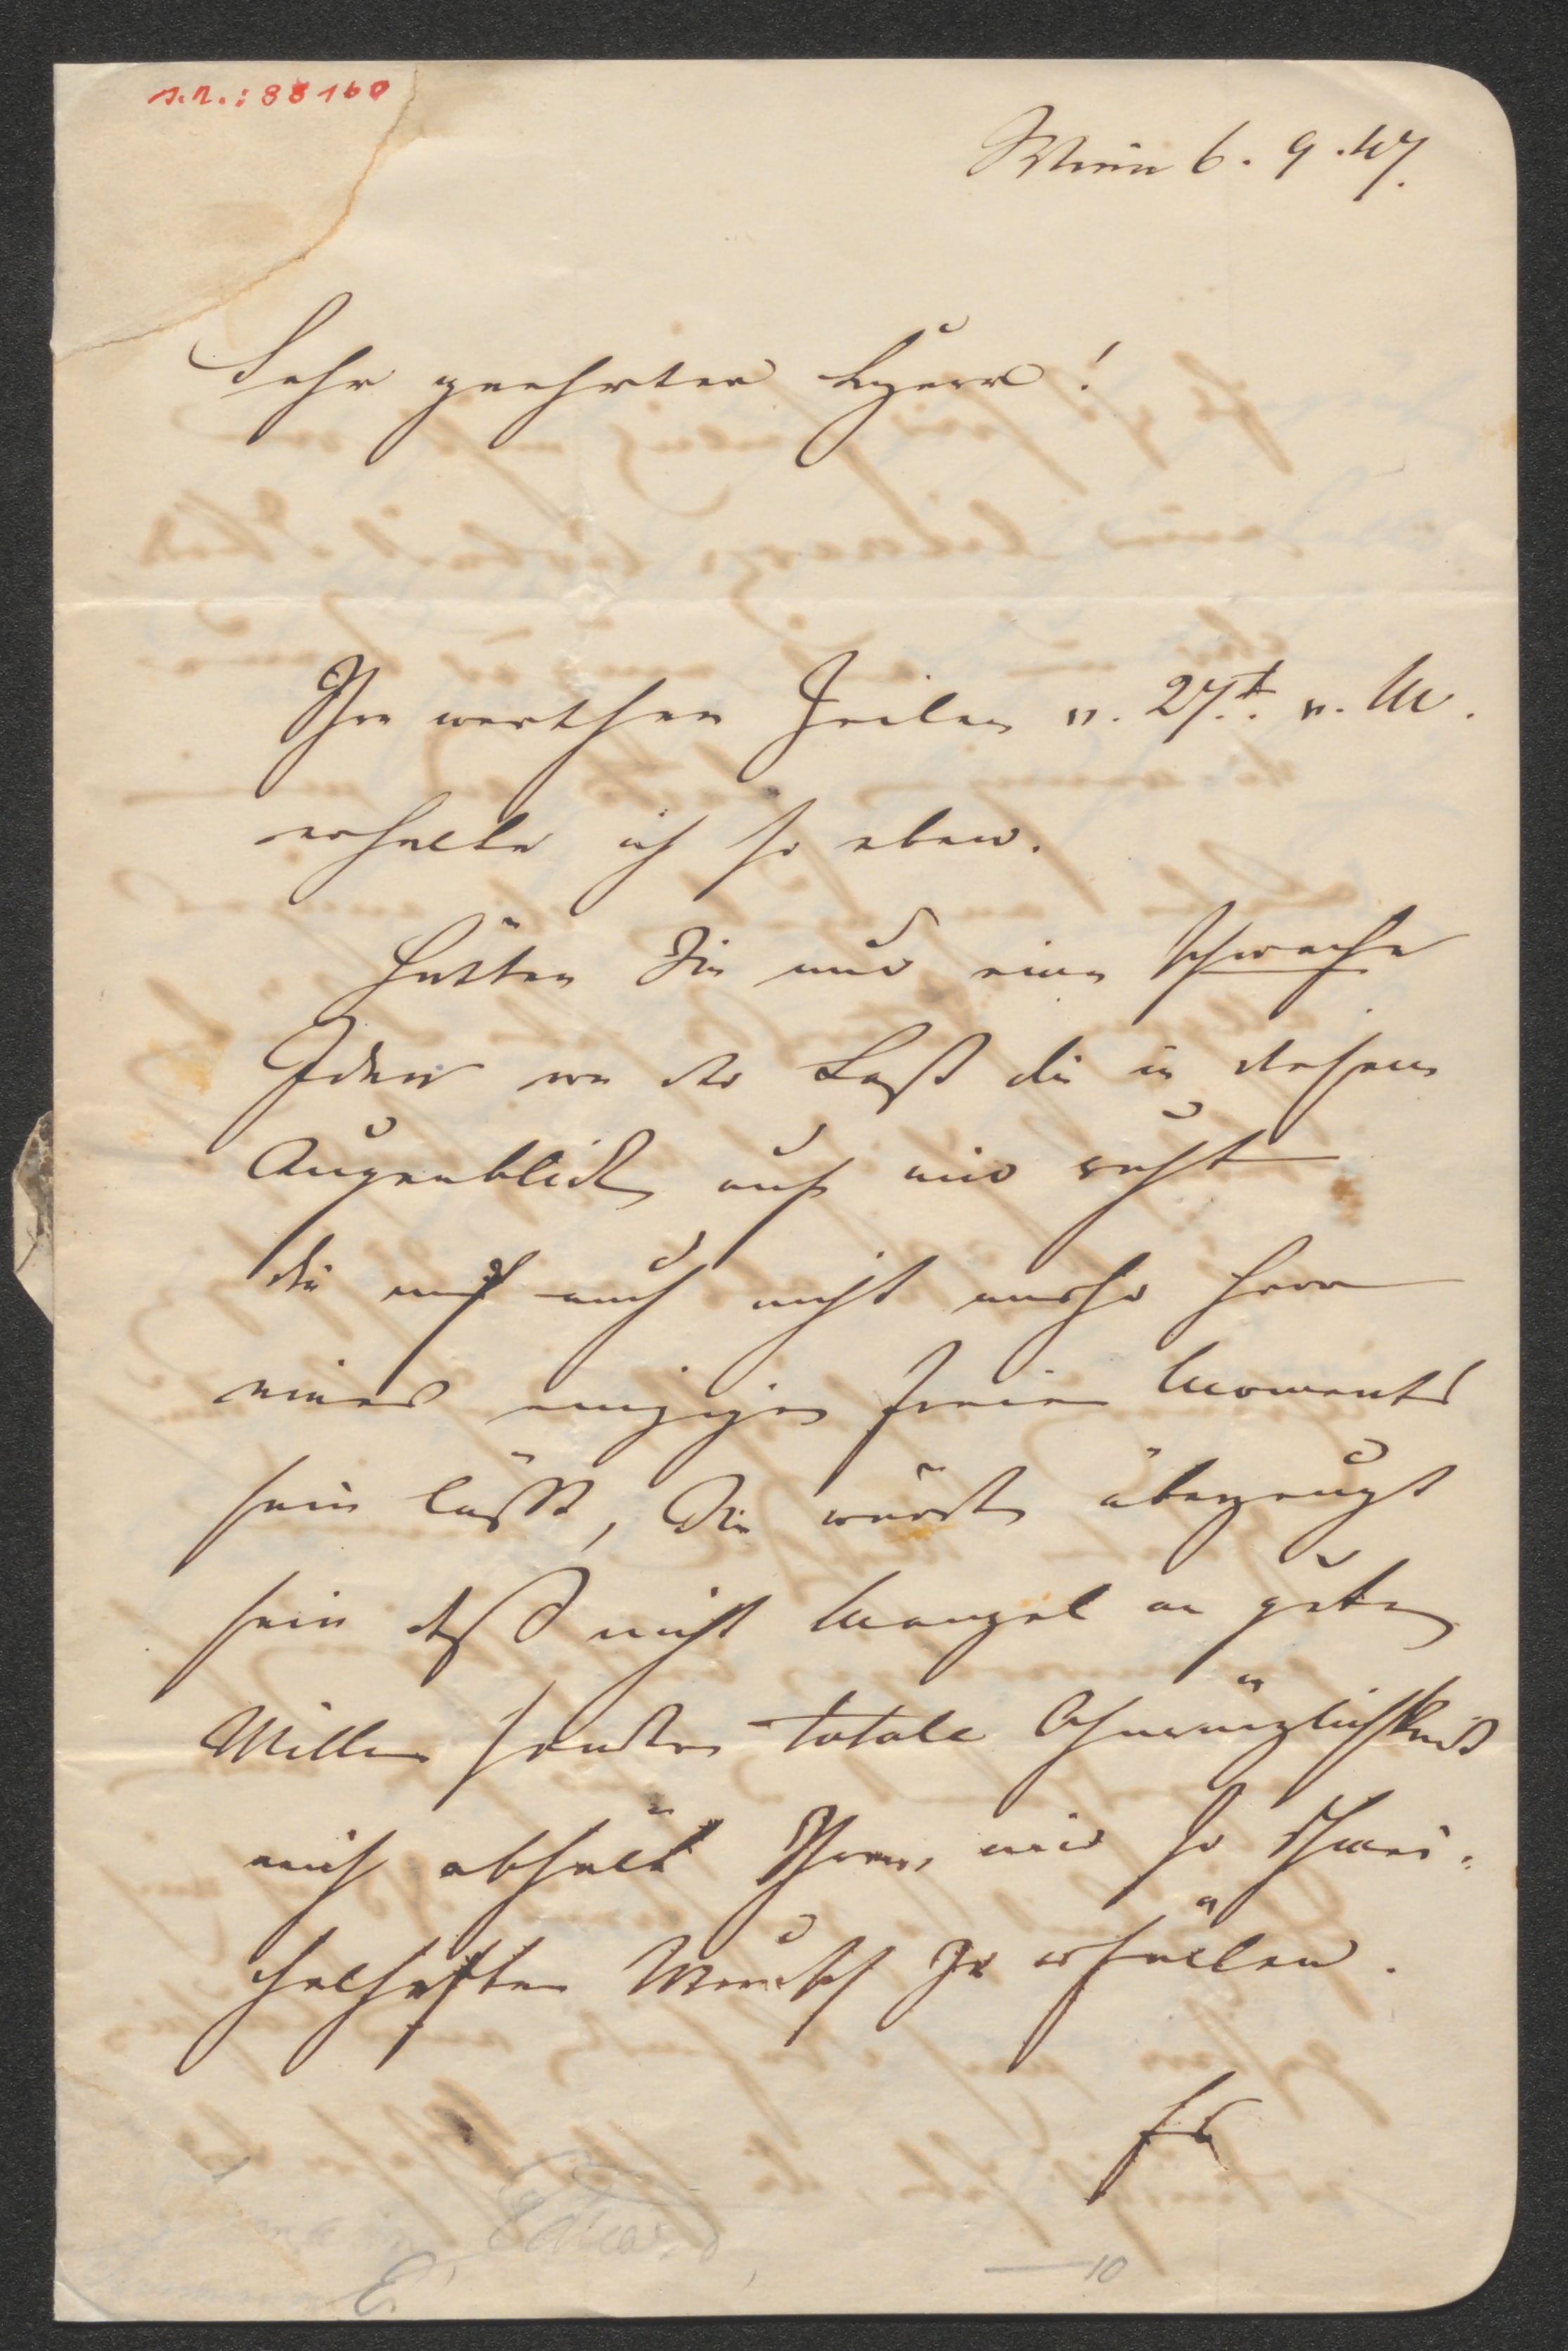 s.n.: 88160
Wien 6. 9. 47.
Sehr geehrter Herr!
Ihre werthen Zeilen v. 27t. v. M.
erhalte ich so eben.
Hätten Sie nur eine schwache
Idee von der Last die in diesem
Augenblick auf mir ruht
die mich auch nicht mehr Herr
eines einzigen freien Moments
sein läßt, Sie würden überzeugt
sein daß nicht Mangel an guten
Willen sondern totale Ohnmöglichkeit
mich abhält Ihren, mir so schmei-
chelhaften Wunsch zu erfüllen.
Es
Eduard
E.
10